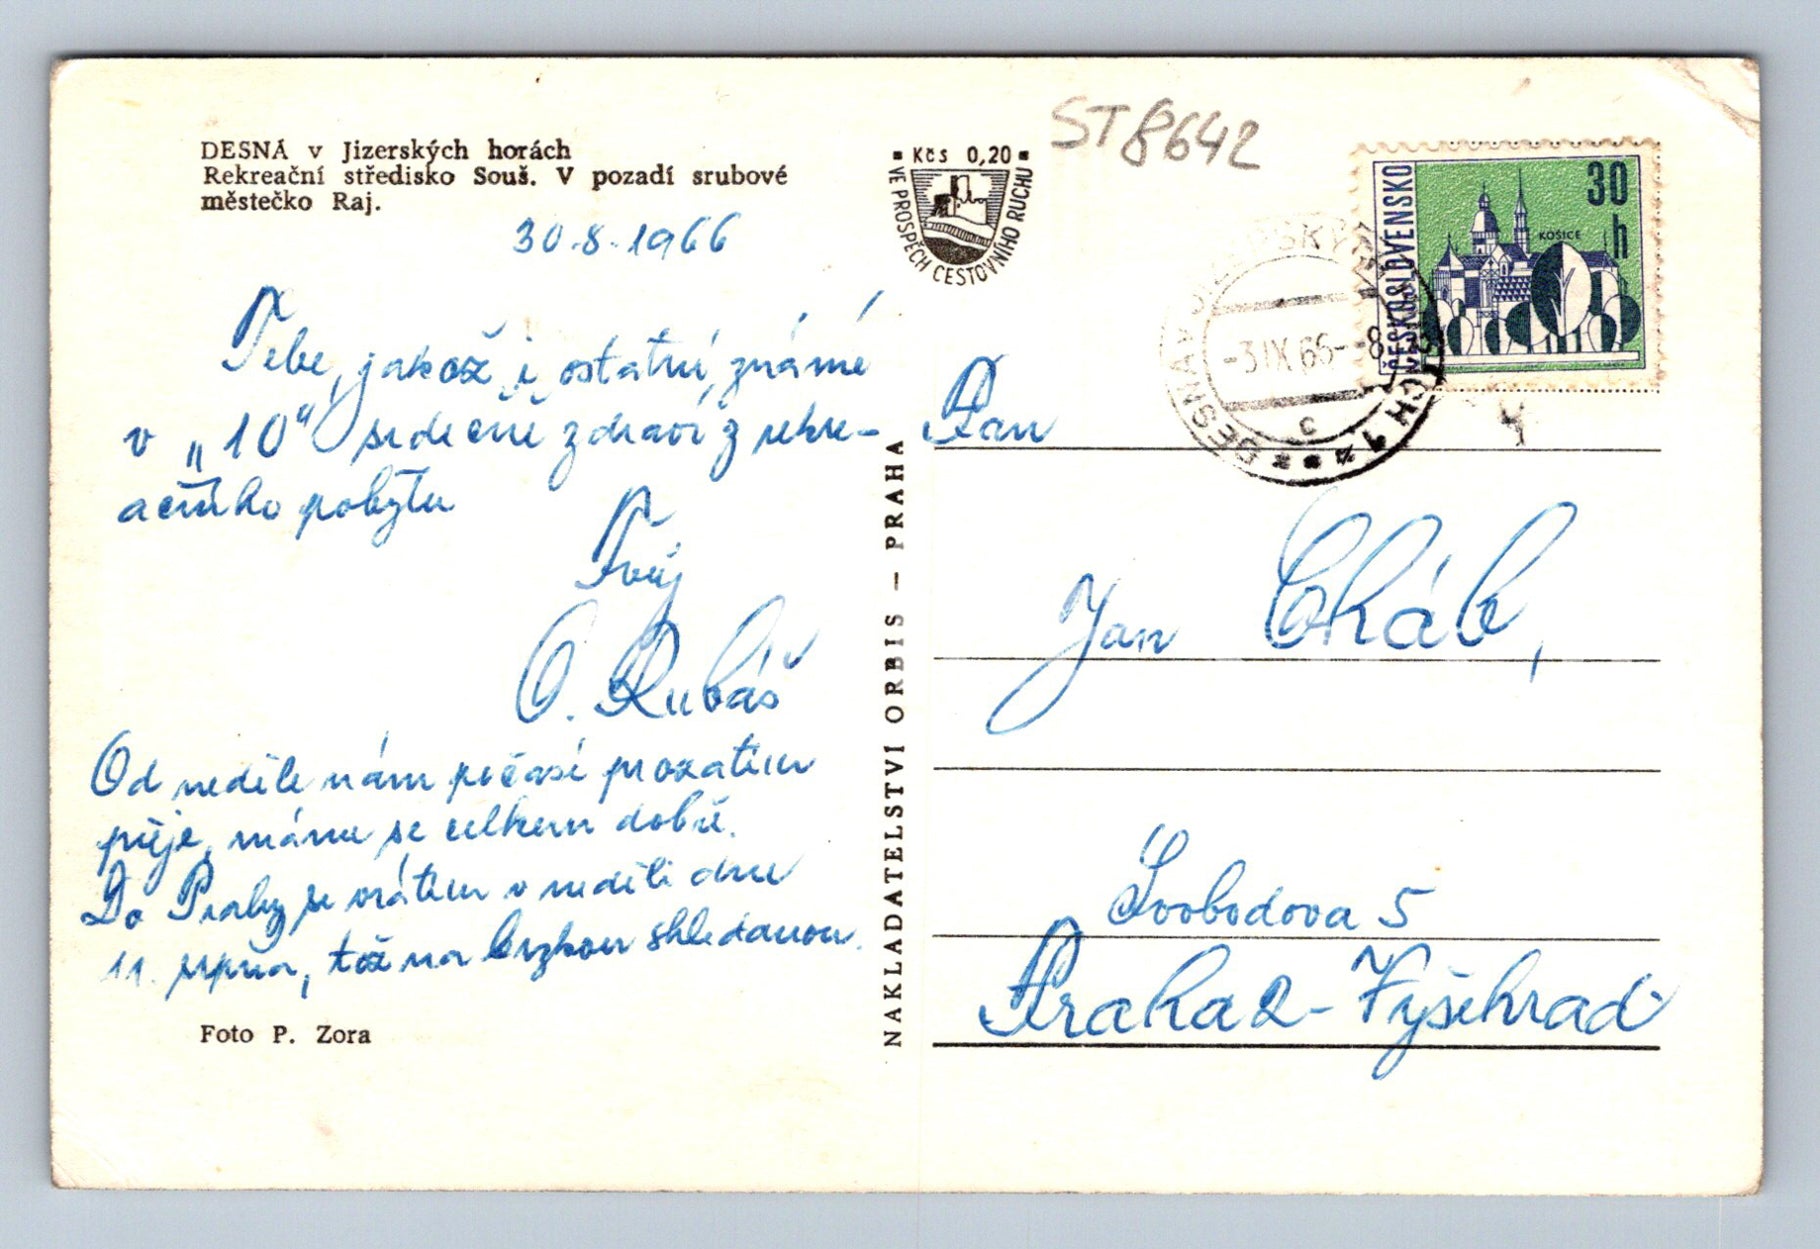 DESNÁ v Jizerských horách
Rekreační středisko Souš. V pozadí srubové
městečko Raj.
30.8.1966
Tebe, jakož i ostatní známé
v „10" srdečně zdraví z rekre-
ačního pobytu
Tvůj
O. Rubáš
Od neděle nám počasí prozatím
přeje, máme se celkem dobře.
Do Prahy se vrátím v neděli dne
11. srpna, tož na brzkou shledanou.
Foto P. Zora
NAKLADATELSTVÍ ORBIS – PRAHA
Kčs 0,20
VE PROSPĚCH CESTOVNÍHO RUCHU
ST8642
ČESKOSLOVENSKO
30 h
KOŠICE
DESNÁ V
-3.IX.66-8
c
Pan
Jan Cháb,
Svobodova 5
Praha 2 - Vyšehrad